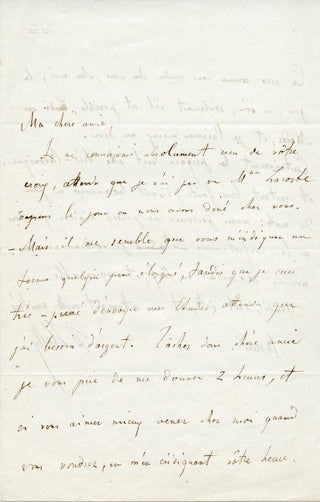 Ma chère amie
Je ne connaissais absolument rien de vôtre
attendu que je n'ai pas vu Mme Lacoste
depuis le jour ou nous avons diné chez vous.
– Mais il me semble que vous m'indiquez un
terme quelque peu éloigné, tandis que je suis
très-pressé d'envoyer mes Etudes attendu que
j'ai besoin d'argent. Tâchez donc chère amie
je vous prie de me donner 2 heures, et
si vous aimez mieux venez chez moi quand
vous voudrez, en m'en indiquant vôtre heure.